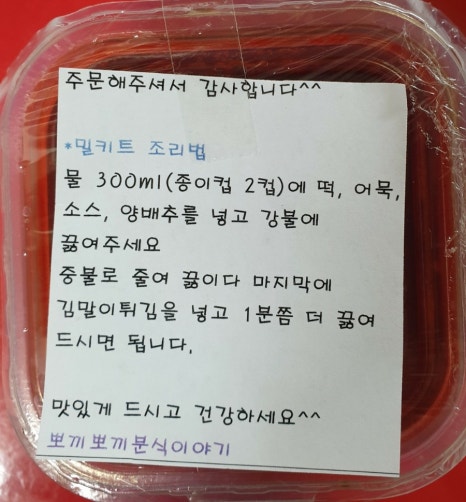 주문해주셔서 감사합니다^^
*밀키트 조리법
물 300ml(종이컵 2컵)에 떡, 어묵,
소스, 양배추를 넣고 강불에
끓여주세요
중불로 줄여 끓이다 마지막에
김말이튀김을 넣고 1분쯤 더 끓여
드시면 됩니다.
맛있게 드시고 건강하세요^^
뽀끼뽀끼분식이야기